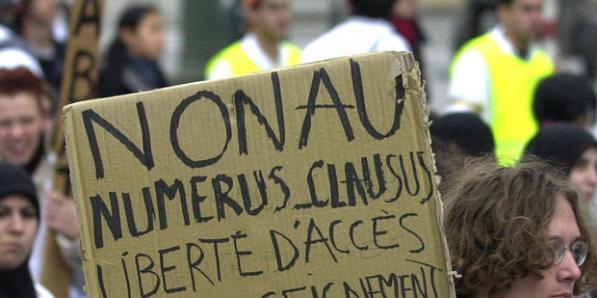 NON AU
NUMERUS_CLAUSUS
LIBERTÉ D'ACCÈS